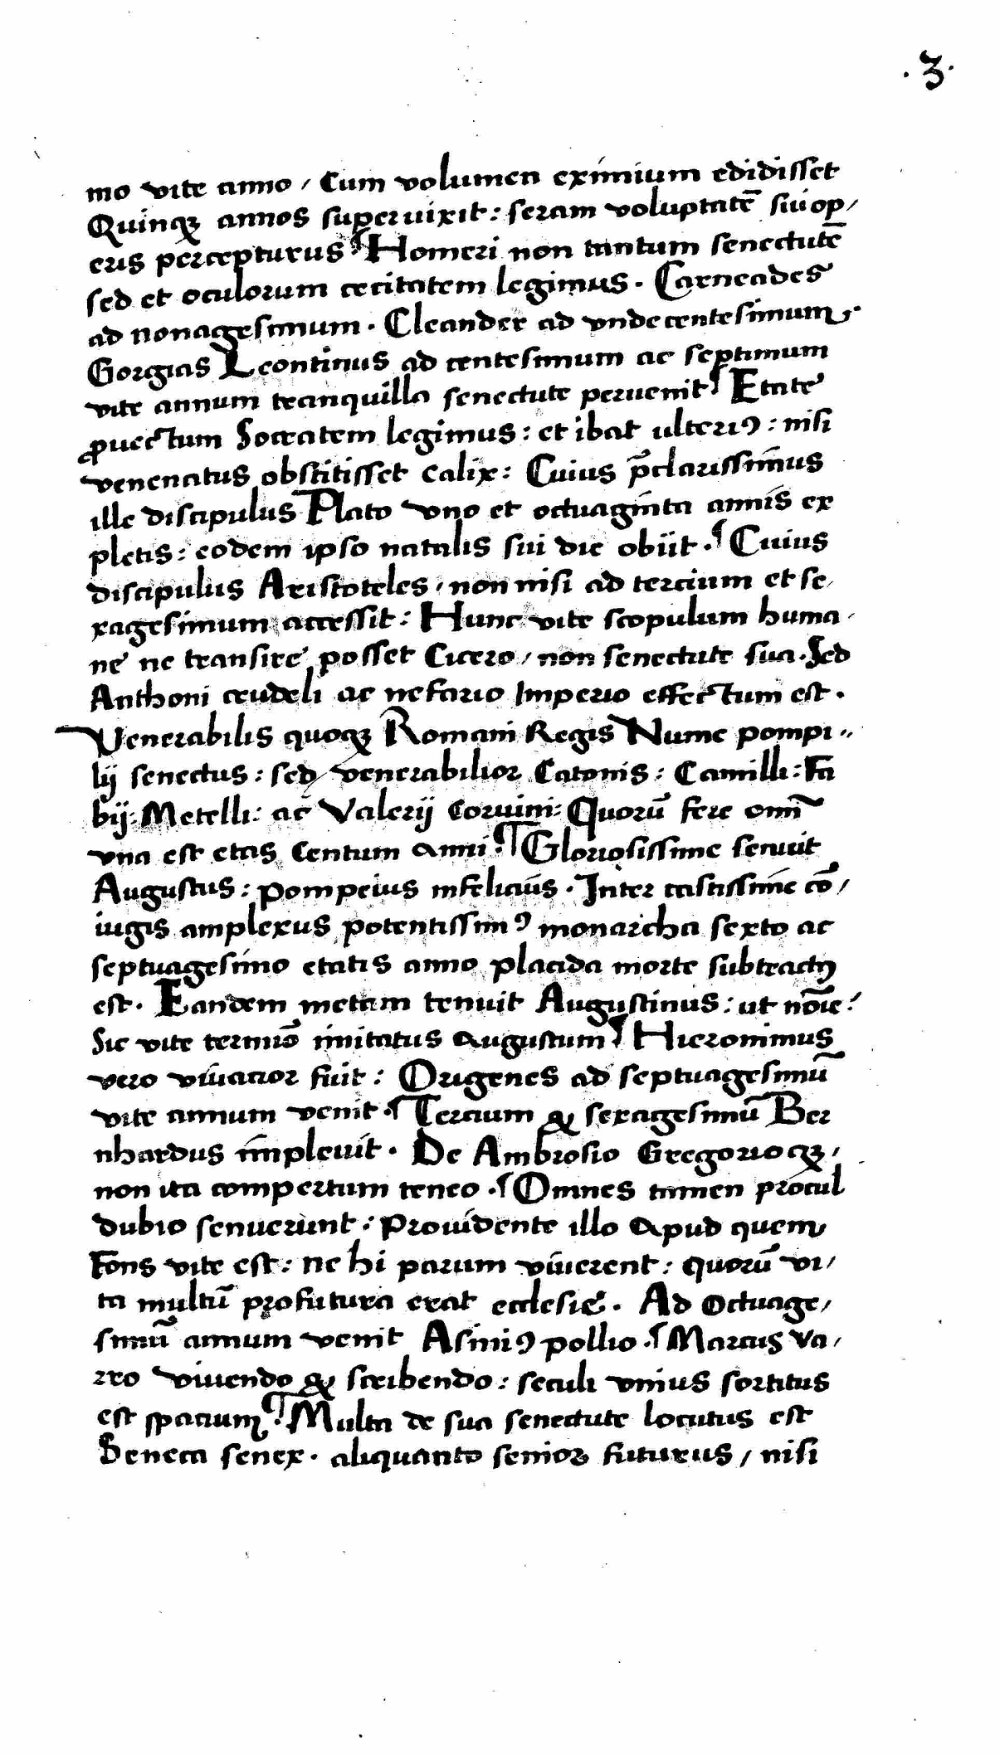 .3.
mo vite anno / Cum volumen eximium edidisset
Quinqꝫ annos superuixit : seram voluptatē sui op/
eris percepturus ¶ Homeri non tantum senectutē
sed et oculorum cecitatem legimus . Carneades
ad nonagesimum . Cleander ad vndecentesimum .
Gorgias Leontinus ad centesimum ac septimum
vite annum tranquilla senectute peruenit ¶ Etate
ꝓuectum Socratem legimus : et ibat ulteriꝰ : nisi
venenatus obstitisset calix : Cuius p̄clarissimus
ille discipulus Plato vno et octuaginta annis ex
pletis : eodem ipso natalis sui die obijt . ¶ Cuius
discipulus Aristoteles . non nisi ad tercium et se/
xagesimum accessit : Hunc vite scopulum huma .
ne ne transire posset Cicero / non senectute sua . Sed
Anthoni crudeli ac nefario Imperio effectum est .
Venerabilis quoqꝫ Romani Regis Nume pompi..
lij senectus : sed venerabilior Catonis : Camilli : Fa
bij : Metelli : ac Valerij Coruini : Quorū fere omī
vna est etas Centum anni . ¶ Gloriosissime senuit
Augustus : pompeius infelicius . Inter castissime cō/
iugis amplexus potentissimꝰ monarcha sexto ac
septuagesimo etatis anno placida morte subtractꝰ
est . Eandem metam tenuit Augustinus : ut nōie :
Sic vite termīo imitatus augustum ¶ Hieronimus
vero viuacior fuit : Origenes ad septuagesimū
vite annum venit . ¶ Tercium & sexagesimū Ber
nhardus impleuit . De Ambrosio Gregorioqꝫ /
non ita compertum teneo . ¶ Omnes tamen procul
dubio senuerunt : prouidente illo apud quem
Fons vite est : ne hi parum viuerent : quorū vi/
ta multū profutura erat ecclesie . Ad octuage/
simū annum venit Asiniꝰ pollio . ¶ Marcus Va/
rro viuendo & scribendo : seculi vnius sortitus
est spacium . ¶ Multa de sua senectute locutus est
Seneca senex . aliquanto senior futurus / nisi